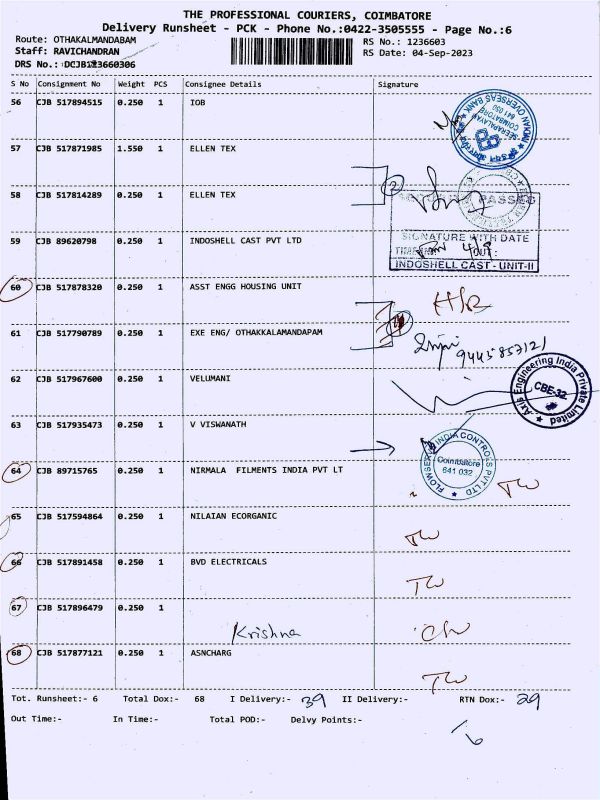 THE PROFESSIONAL COURIERS, COIMBATORE
Delivery Runsheet - PCK - Phone No.:0422-3505555 - Page No.:6
Route: OTHAKALMANDABAM
RS No.: 1236603
Staff: RAVICHANDRAN
RS Date: 04-Sep-2023
S No Consignment No Weight PCS Consignee Details Signature
56 CJB 517894515 0.250 1 IOB
INDIAN OVERSEAS BANK
COIMBATORE
641 030
57 CJB 517871985 1.550 1 ELLEN TEX
58 CJB 517814289 0.250 1 ELLEN TEX
2
PASSED
59 CJB 89620798 0.250 1 INDOSHELL CAST PVT LTD
SIGNATURE WITH DATE
OUT:
INDOSHELL CAST - UNIT-II
60 CJB 517878320 0.250 1 ASST ENGG HOUSING UNIT
61 CJB 517790789 0.250 1 EXE ENG/ OTHAKKALOMANDAPAM
9445857121
62 CJB 517967600 0.250 1 VELUMANI
Axis Engineering India Private Limited
CBE-32
63 CJB 517935473 0.250 1 V VISWANATH
FLOWSERVE INDIA CONTROLS PVT LTD
Coimbatore
641 032
64 CJB 89715765 0.250 1 NIRMALA FILMENTS INDIA PVT LT
65 CJB 517594864 0.250 1 NILAIAN ECORGANIC
66 CJB 517891458 0.250 1 BVD ELECTRICALS
67 CJB 517896479 0.250 1
Krishna
68 CJB 517877121 0.250 1 ASNCHARG
Tot. Runsheet:- 6 Total Dox:- 68 I Delivery:- 39 II Delivery:- RTN Dox:- 29
Out Time:- In Time:- Total POD:- Delvy Points:-